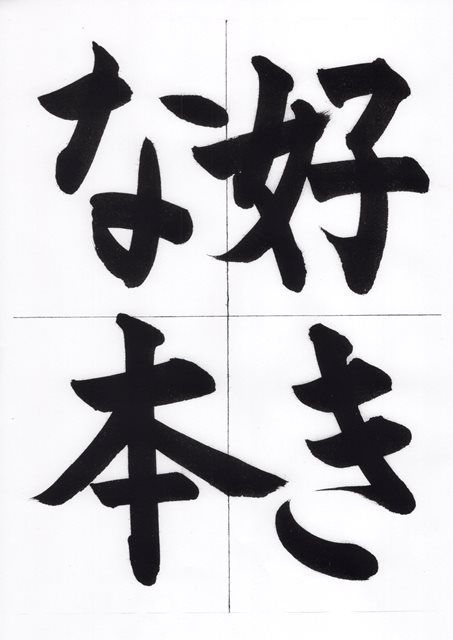 好き
な本